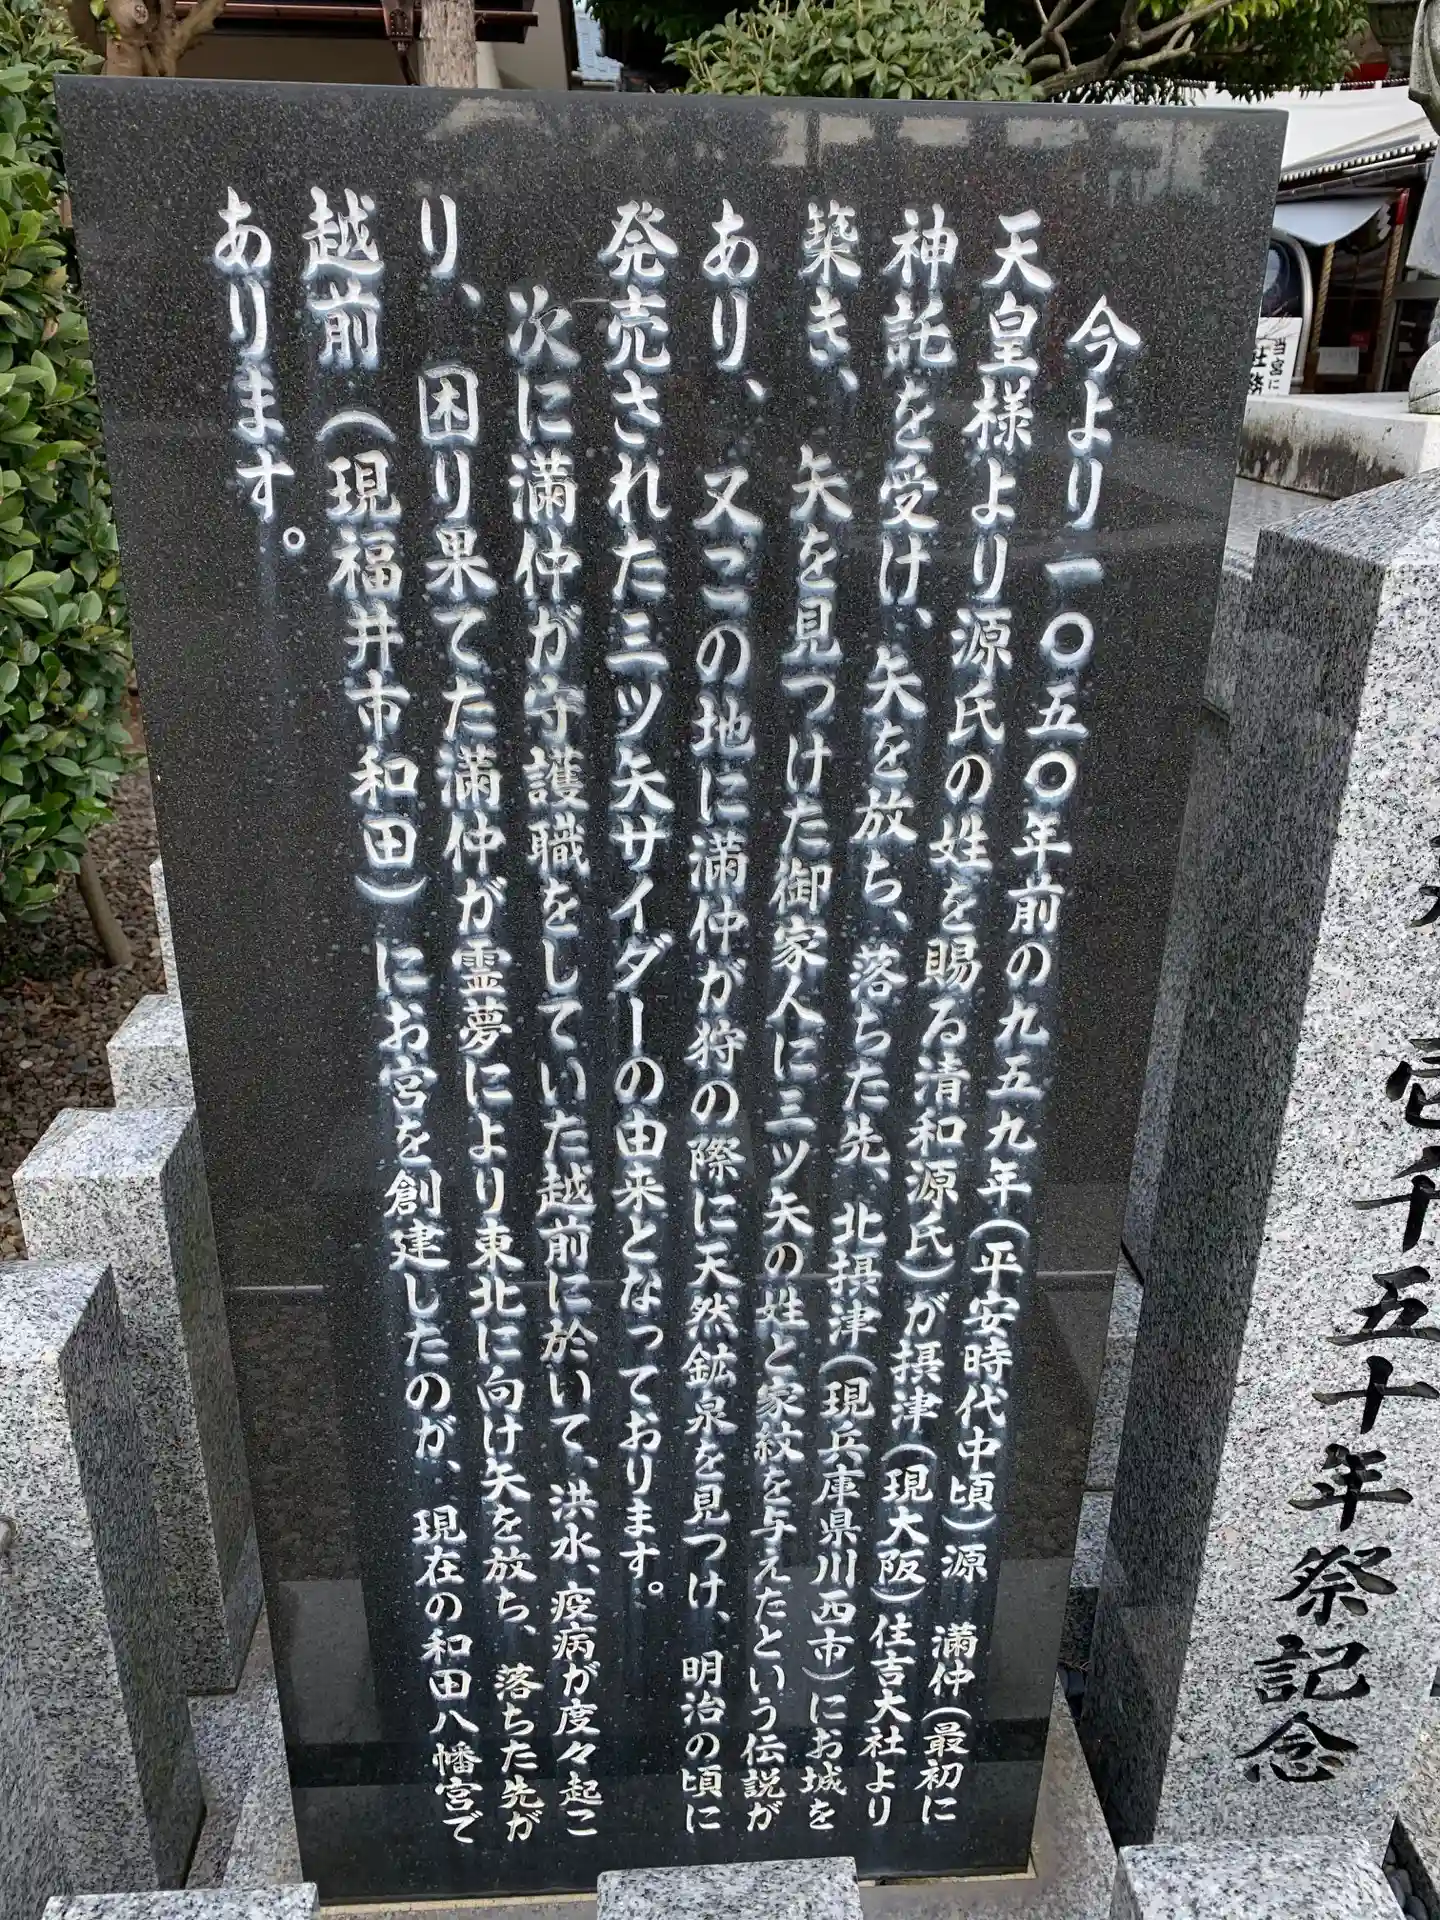 今より一〇五〇年前の九五九年(平安時代中頃)源 満仲(最初に
天皇様より源氏の姓を賜る清和源氏)が摂津(現大阪)住吉大社より
神託を受け、矢を放ち、落ちた先、北摂津(現兵庫県川西市)にお城を
築き、矢を見つけた御家人に三ツ矢の姓と家紋を与えたという伝説が
あり、又この地に満仲が狩の際に天然鉱泉を見つけ、明治の頃に
発売された三ツ矢サイダーの由来となっております。
次に満仲が守護職をしていた越前に於いて、洪水、疫病が度々起こ
り、困り果てた満仲が霊夢により東北に向け矢を放ち、落ちた先が
越前(現福井市和田)にお宮を創建したのが、現在の和田八幡宮で
あります。
壱千五十年祭記念
当宮に